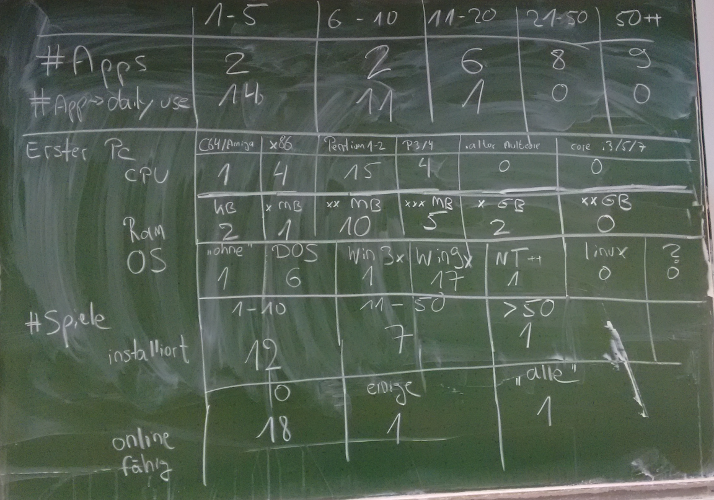 1-5 6-10 11-20 21-50 50++
#Apps 2 2 6 8 9
#App→daily use 14 11 1 0 0
Erster Pc C64/Amiga x86 Pentium 1-2 P3/4 alter Multicore core i3/5/7
CPU 1 4 15 4 0 0
KB x MB xx MB xxx MB x GB xx GB
Ram 2 1 10 5 2 0
"ohne" DOS Win 3x Win9x NT++ linux ?
OS 1 6 1 17 1 0 0
#Spiele 1-10 11-50 >50
installiert 12 7 1
0 einige "alle"
18 1 1
online
fähig